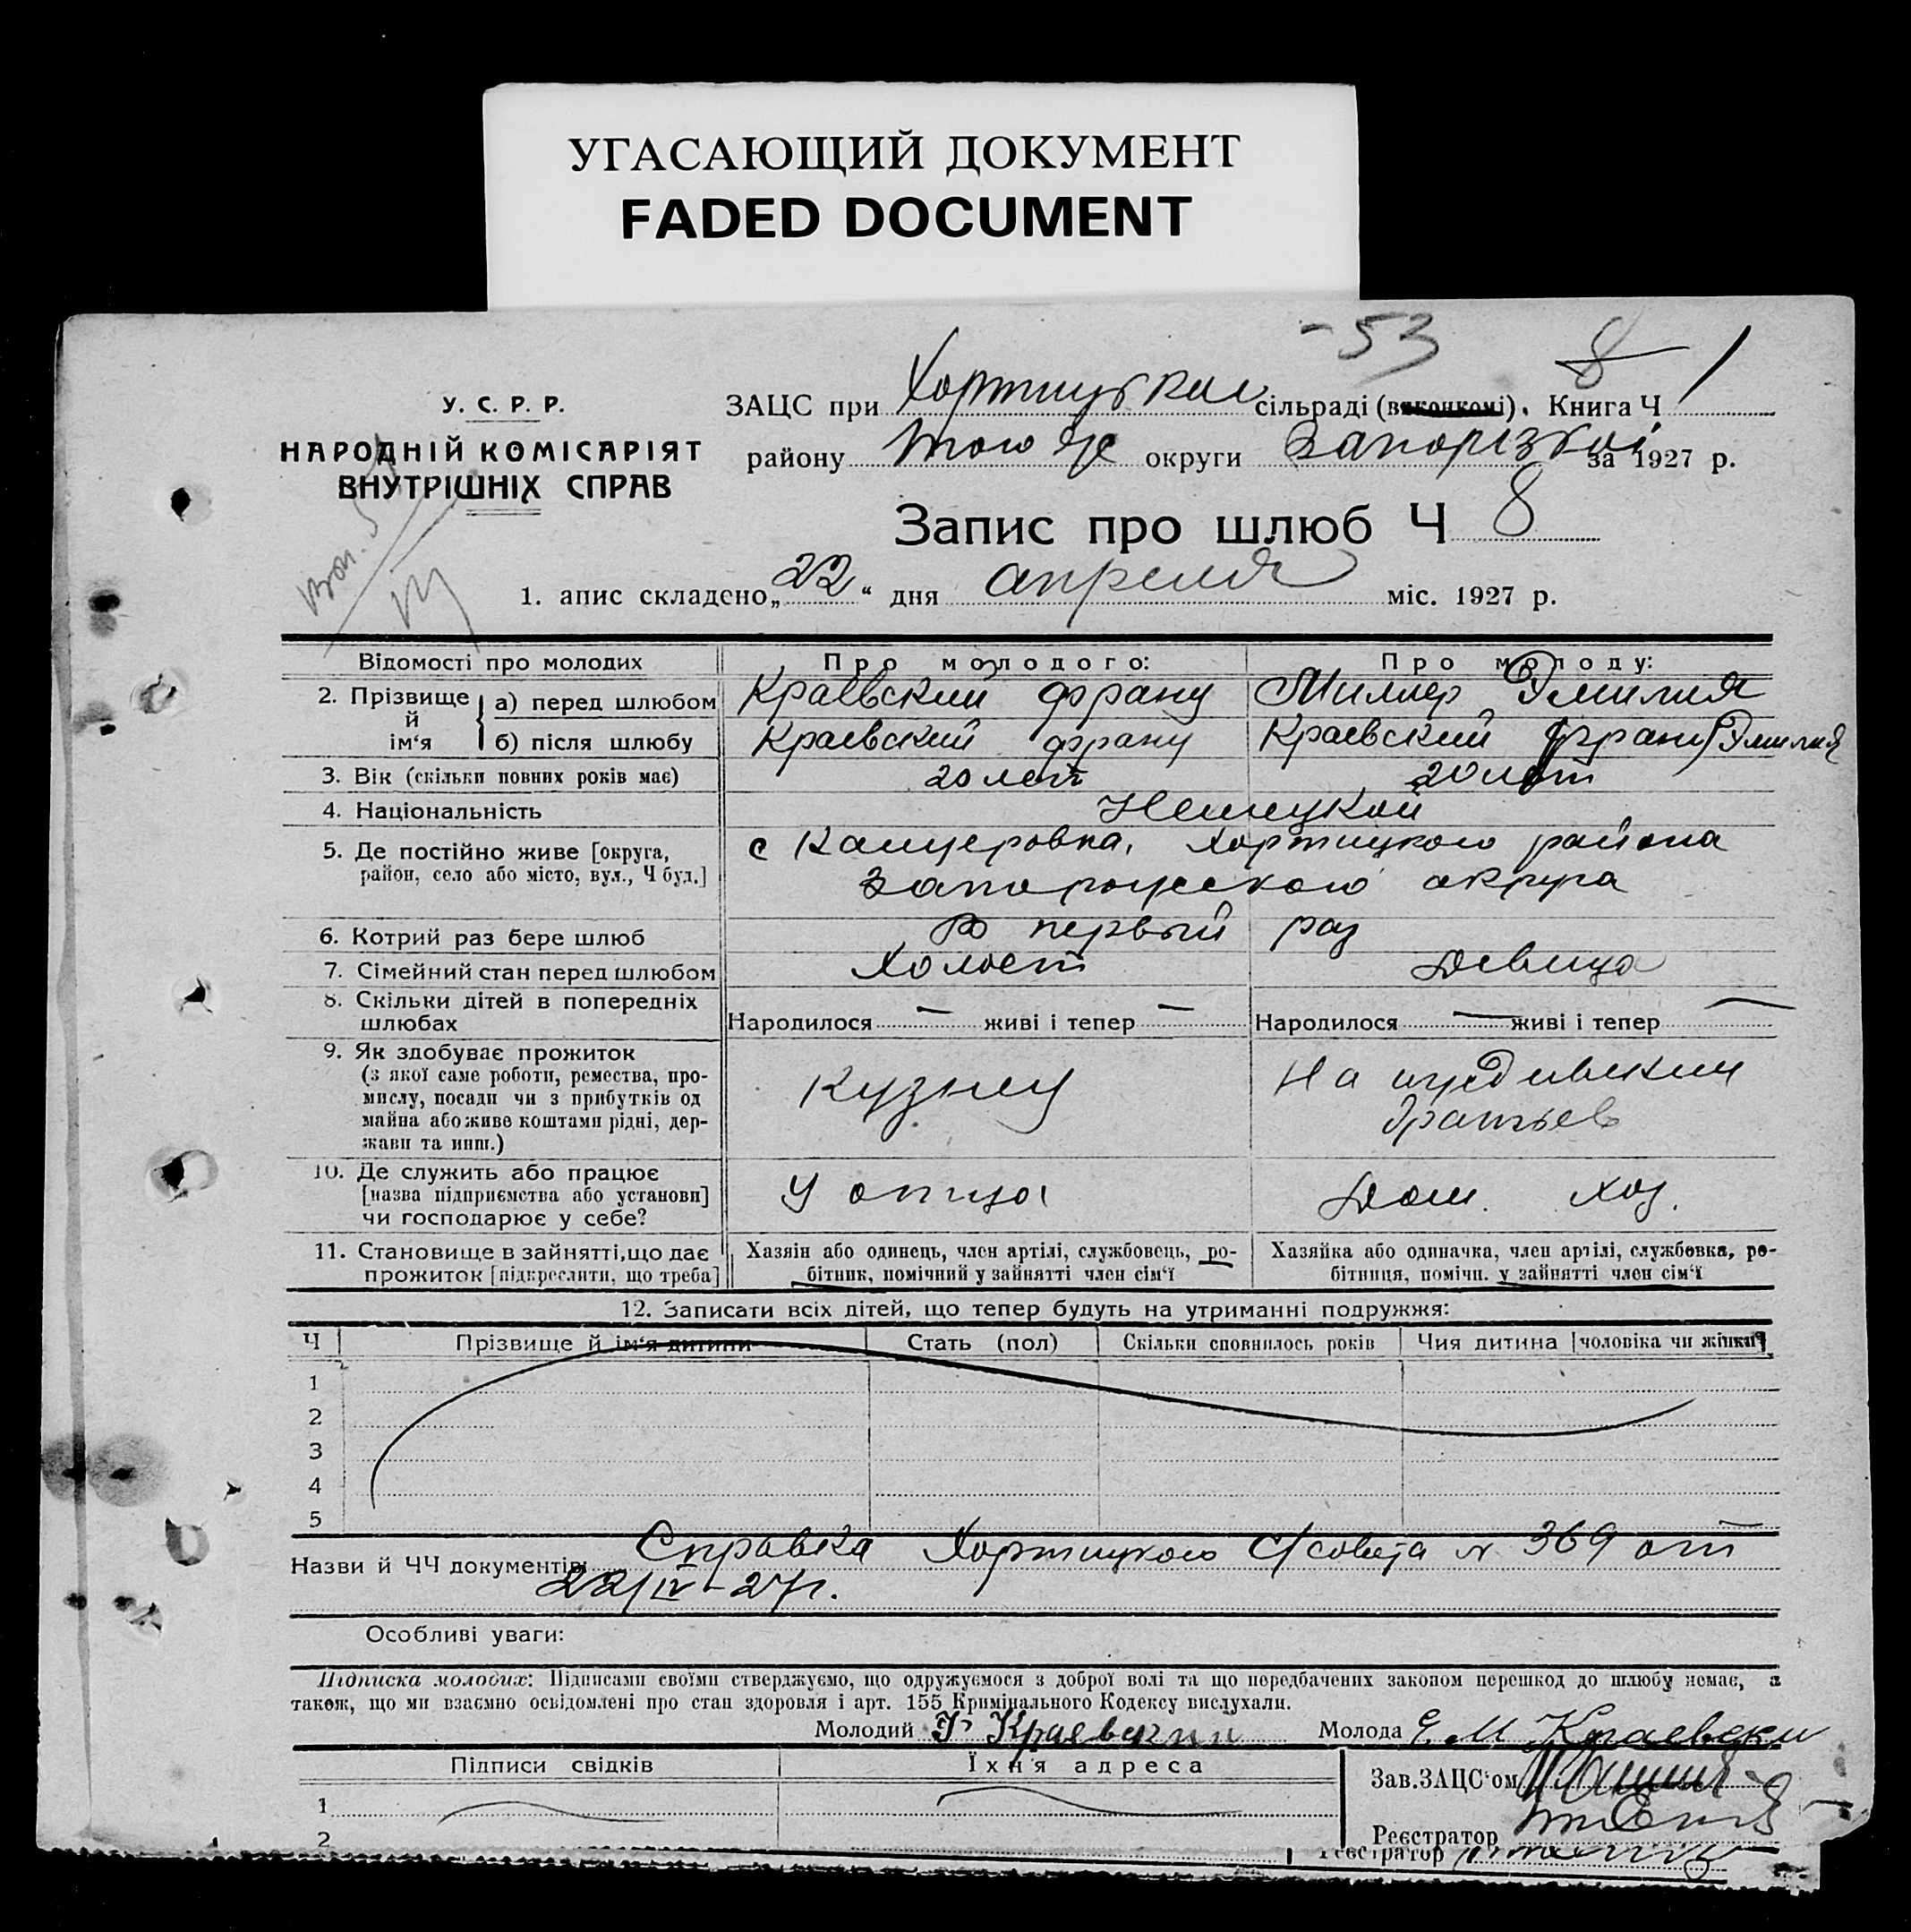 УГАСАЮЩИЙ ДОКУМЕНТ
FADED DOCUMENT
-53 8 1
У. С. Р. Р.
НАРОДНІЙ КОМІСАРІЯТ
ВНУТРІШНІХ СПРАВ
ЗАЦС при Хортицькой сільраді (виконкомі). Книга Ч
району того же округи Запорізкой за 1927 р.
Запис про шлюб Ч 8
1. апис складено „22“ дня апреля міс. 1927 р.
Відомості про молодих Про молодого: Про молоду:
2. Прізвище й ім‘я а) перед шлюбом Краевский Франц Миллер Эмилия
б) після шлюбу Краевский Франц Краевский Франц Эмилия
3. Вік (скільки повних років має) 20 лет 20 лет
4. Національність Немецкой
5. Де постійно живе [округа, с Канцеровка, Хортицкого района
район, село або місто, вул., Ч буд.] Запорожского округа
6. Котрий раз бере шлюб В первый раз
7. Сімейний стан перед шлюбом Холост Девица
8. Скільки дітей в попередніх
шлюбах Народилося — живі і тепер — Народилося — живі і тепер —
9. Як здобуває прожиток
(з якої саме роботи, ремества, про- Кузнец На иждивении
мислу, посади чи з прибутків од братьев
майна або живе коштами рідні, дер-
жави та инш.)
10. Де служить або працює
[назва підприємства або установи] У отца Дом. хоз.
чи господарює у себе?
11. Становище в зайнятті, що дає Хазяін або одинець, член артілі, службовець, ро- Хазяйка або одиначка, член артілі, службовка, ро-
прожиток [підкреслити, що треба] бітник, помічний у зайнятті член сім‘ї бітниця, помічн. у зайнятті член сім‘ї
12. Записати всіх дітей, що тепер будуть на утриманні подружжя:
Ч Прізвище й ім‘я дитини Стать (пол) Скільки сповнилось років Чия дитина [чоловіка чи жінки]
1
2
3
4
5
Назви й ЧЧ документів: Справка Хортицкого с/совета № 369 от
22/IV-27г.
Особливі уваги:
Підписка молодих: Підписами своїми стверджуємо, що одружуємося з доброї волі та що передбачених законом перешкод до шлюбу немає, а
також, що ми взаємно освідомлені про стан здоровля і арт. 155 Кримінального Кодексу вислухали.
Молодий Ф Краевский Молода Е. М Краевски
Підписи свідків Їхня адреса Зав.ЗАЦС‘ом
1
2 Реєстратор
Реєстратор